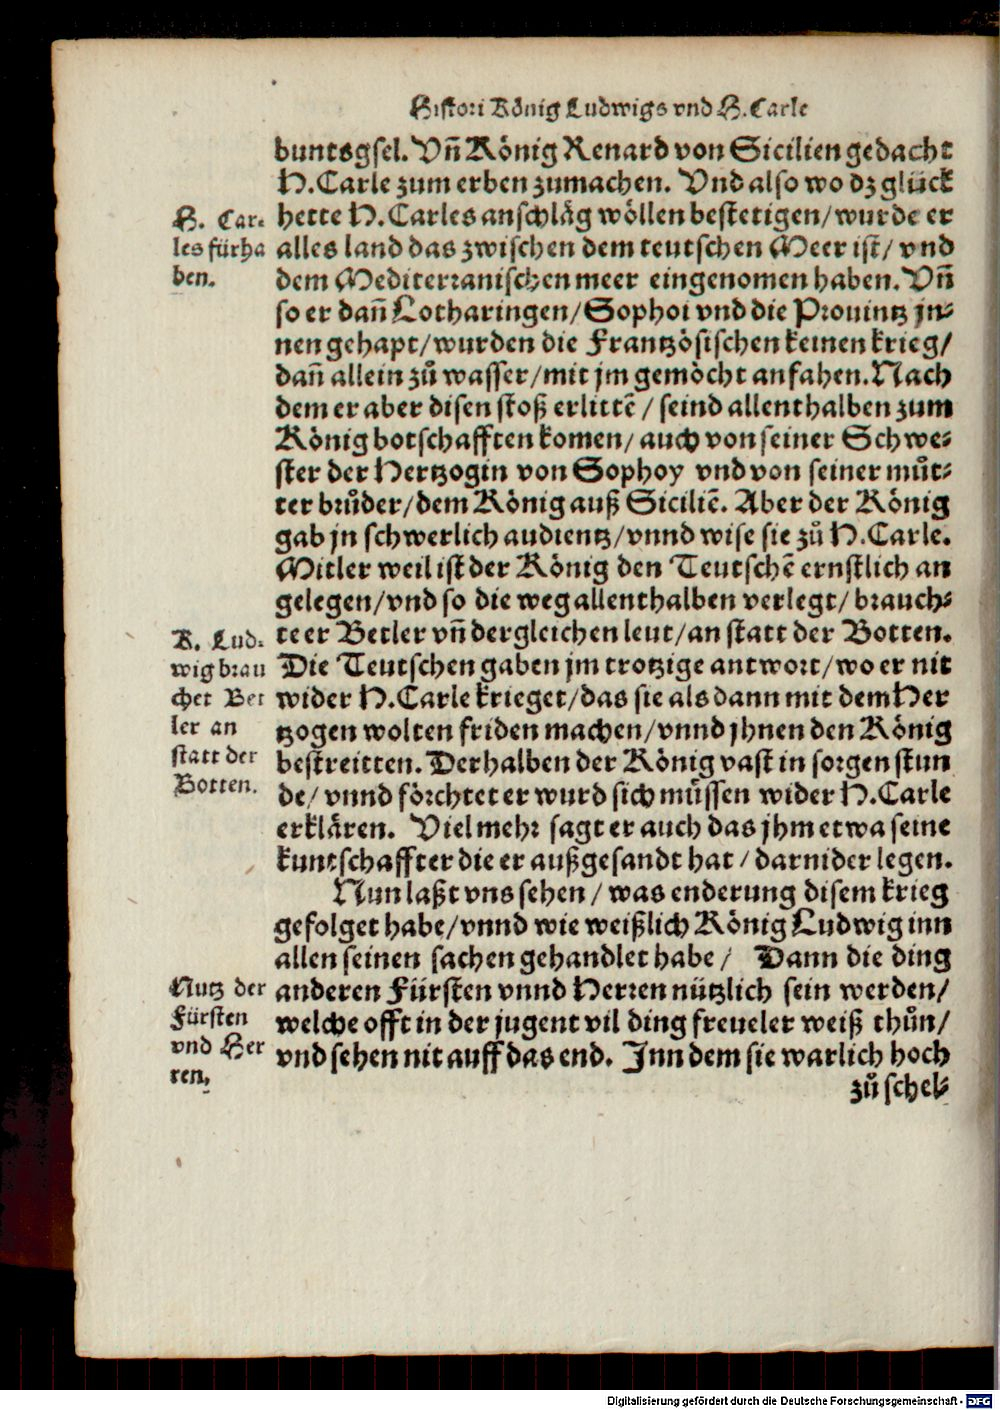 Histori König Ludwigs vnd H. Carle
buntsgsel. Vñ König Renard von Sicilien gedacht
H. Carle zum erben zumachen. Vnd also wo dz glück
hette H. Carles anschläg wöllen bestetigen/ wurde er
alles land das zwischen dem teutschen Meer ist/ vnd
dem Mediterranischen meer eingenomen haben. Vñ
so er dañ Lotharingen/ Sophoi vnd die Prouintz jn⸗
nen gehapt/ wurden die Frantzösischen keinen krieg/
dañ allein zů wasser/ mit jm gemöcht anfahen. Nach
dem er aber disen stoß erlittē/ seind allenthalben zum
König botschafften komen/ auch von seiner Schwe⸗
ster der Hertzogin von Sophoy vnd von seiner můt⸗
ter brůder/ dem König auß Siciliē. Aber der König
gab jn schwerlich audientz/ vnnd wise sie zů H. Carle.
Mitler weil ist der König den Teutschē ernstlich an
gelegen/ vnd so die weg allenthalben verlegt/ brauch⸗
te er Betler vñ dergleichen leut/ an statt der Botten.
Die Teutschen gaben jm trotzige antwort/ wo er nit
wider H. Carle krieget/ das sie als dann mit dem Her
tzogen wolten friden machen/ vnnd jhnen den König
bestreitten. Derhalben der König vast in sorgen stun
de/ vnnd förchtet er wurd sich müssen wider H. Carle
erklären. Viel mehr sagt er auch das jhm etwa seine
kuntschaffter die er außgesandt hat/ darnider legen.
Nun laßt vns sehen/ was enderung disem krieg
gefolget habe/ vnnd wie weißlich König Ludwig inn
allen seinen sachen gehandlet habe/ Dann die ding
anderen Fürsten vnnd Herren nützlich sein werden/
welche offt in der jugent vil ding freueler weiß thůn/
vnd sehen nit auff das end. Inn dem sie warlich hoch
zů schel⸗
H. Car⸗
les fürha
ben.
K. Lud⸗
wig brau
chet Bet
ler an
statt der
Botten.
Nutz der
Fürsten
vnd Her
ren.
Digitalisierung gefördert durch die Deutsche Forschungsgemeinschaft - DFG